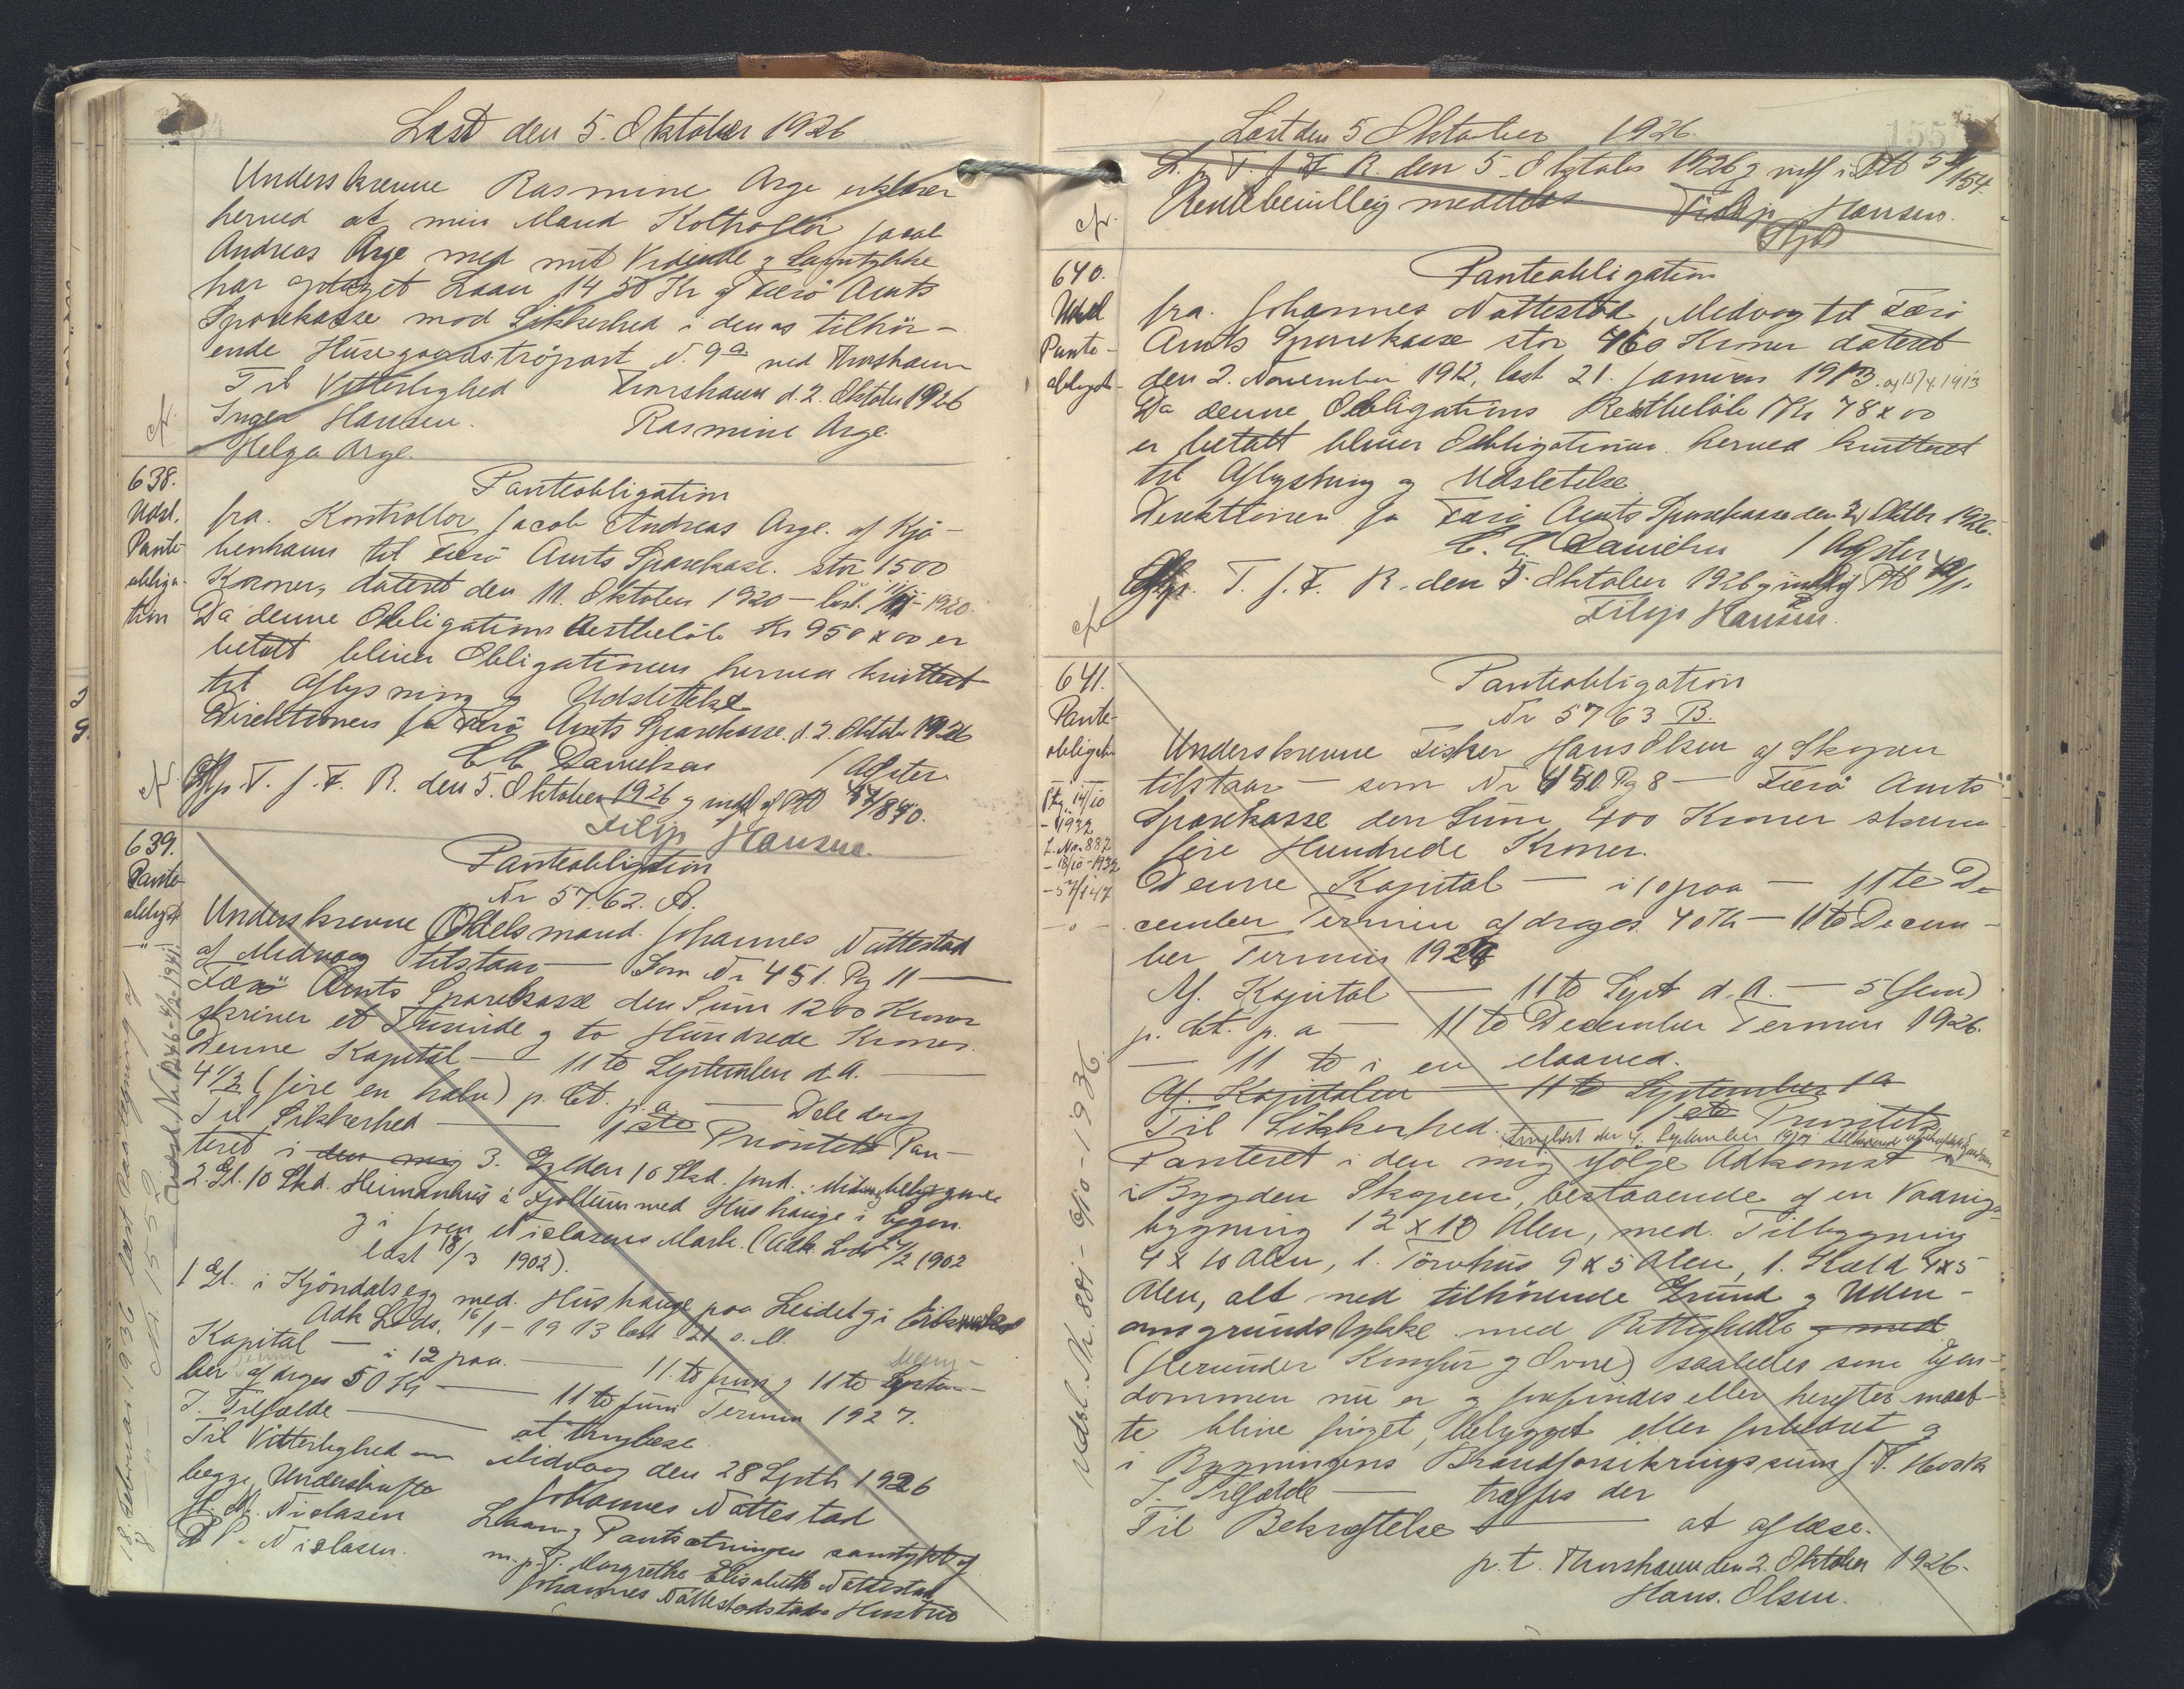 Læst den 5. Oktober 1926
Underskrevne Rasmine Arge erklærer
herved at min Mand Kontrollør Jacob
Andreas Arge med mit Vidende og Samtykke
har optaget Laan 1450 Kr af Færø Amts
Sparekasse mod Sikkerhed i dennes tilhør-
ende Husegaardstropart N. 9a ved Thorshavn
Til Vitterlighed Thorshavn d. 2. Oktober 1926
Inger Hansen. Rasmine Arge.
Helga Arge.
638.
Udsl.
Pante-
obliga-
tion
Panteobligation
fra Kontrollør Jacob Andreas Arge. af Kjø-
benhavn til Færø Amts Sparekasse. stor 1500
Kroner, dateret den 11. Oktober 1920 – læst 1920.
Da denne Obligations Restbeløb Kr 950 x 00 er
betalt bliver Obligationen herved kvitteret
til Aflysning og Udslettelse
Direktionen for Færø Amts Sparekasse. d. 2. Oktober 1926
C. C. Danielsen / Alster.
Aflp. T. f. F. R. den 5. Oktober 1926 og indf af Ptb
Filip Hansen.
639.
Pante-
obligat
Panteobligation
Nr 5762. A.
Underskrevne Odelsmand. Johannes Nattestad
af Midvaag tilstaar — Som Nr 451. Pg 11 —
Færø Amts Sparekasse den Sum 1200 Kroner
skriver et Tusinde og to Hundrede Kroner.
Denne Kapital — 11te September d.A. —
4 1/2 (fire en halv) p. Ct. p. a — Dele deraf
Til Sikkerhed — 1ste Prioritets Pan-
teret i den mig 3. Gylden 10 Skd. Jord. i Midvaag belig
2. Gl. 10 Skd. Heimanhus á Fjøllum med Hushauge i bygden.
og i Jens Nislasens Mark. (Adk. L-dr 4/2 1902
læst 18/3 1902).
1 Gl. i Kjøndalsegg med. Hushauge paa Leidet og i
Adk L-ds. 16/1 – 1913 læst 21 s. M.
Kapital — i 12 paa. — 11. te Juni og 11te
ber afdrages 50 Kr — 11te Juni Termin 1927.
I. Tilfælde — at tinglæse.
Til Vitterlighed om Midvaag den 28 Septb 1926
begge Underskrifter Johannes Nattestad
J. M. Nielasen Laan og Pantsætningen samtykt af
D P. Nislasen. m. p. P. Margrethe Elisabeth Nattestad
Johannes Nattestads Hustru
18. Februar 1936 læst Paategning af
Udsl. No 1246 – 4/12 – 1941
Læst den 5 Oktober 1926.
L. p T. f F R. den 5. Oktober 1926 og indf i Ptb 57/154.
Rentebevilling meddeles Filip Hansen.
640.
Udsl
Pante-
obligat-
Panteobligation
fra. Johannes Nattestad, Midvaag til Færø
Amts Sparekasse stor 460 Kroner dateret
den 2. November 1912, læst 21. Januar 1913. og 15/4. 1913
Da denne Obligations Restbeløb Kr 78 x 00
er betalt bliver Obligationen herved kvitteret
til Aflysning og Udslettelse
Direktionen for Færø Amts Sparekasse den 2 Oktbr 1926.
C. C. Danielsen / Alster
Aflp. T. f. F. R. den 5. Oktober 1926 og indf af Ptb
Filip Hansen.
641.
Pante-
obligation
Ptg. 14/10
– 1932
L. No. 882
– 18/10 – 1932
– 57/147
Panteobligation
Nr 5763 B.
Underskrevne Fisker Hans Olsen af Skopen
tilstaar — som Nr 450 Pg 8 — Færø Amts
Sparekasse den Sum 400 Kroner skriver
fire Hundrede Kroner.
Denne Kapital — i 10 paa — 11te De-
cember Termin afdrages 40 Kr — 11te Decem-
ber Termin 1927
Af. Kapital — 11te Sept d. A. — 5 (fem)
p. Ct. p. a — 11te December Termin 1926.
— 11 te i en Maaned.
Af. Kapitalen — 11te September 1a
Til Sikkerhed. 1ste Prioritets
Tinglæst den 4. September 1917
Panteret i den mig ifølge Adkomst
i Bygden Skopen, bestaaende af en Vaanings-
bygning 12 x 10 Alen, med. Tilbygning
4 x 10 Alen, 1. Tørvhus 9 x 5 Alen, 1. Kæld 4x5
Alen, alt med tilhørende Grund og Uden-
omsgrundstykke med Rettigheder og med
(herunder Komfur og Ovne) saaledes som Ejen-
dommen nu er og forfindes eller herefter maat-
te blive forøget, bebygget eller forbedret og
i Bygningens Brandforsikringssum
I. Tilfælde — træffes der
Til Bekræftelse — at aflæse.
p. t. Thorshavn den 2. Oktober 1926.
Hans. Olsen.
Udsl. Nr. 881 – 9/10 – 1936.
155